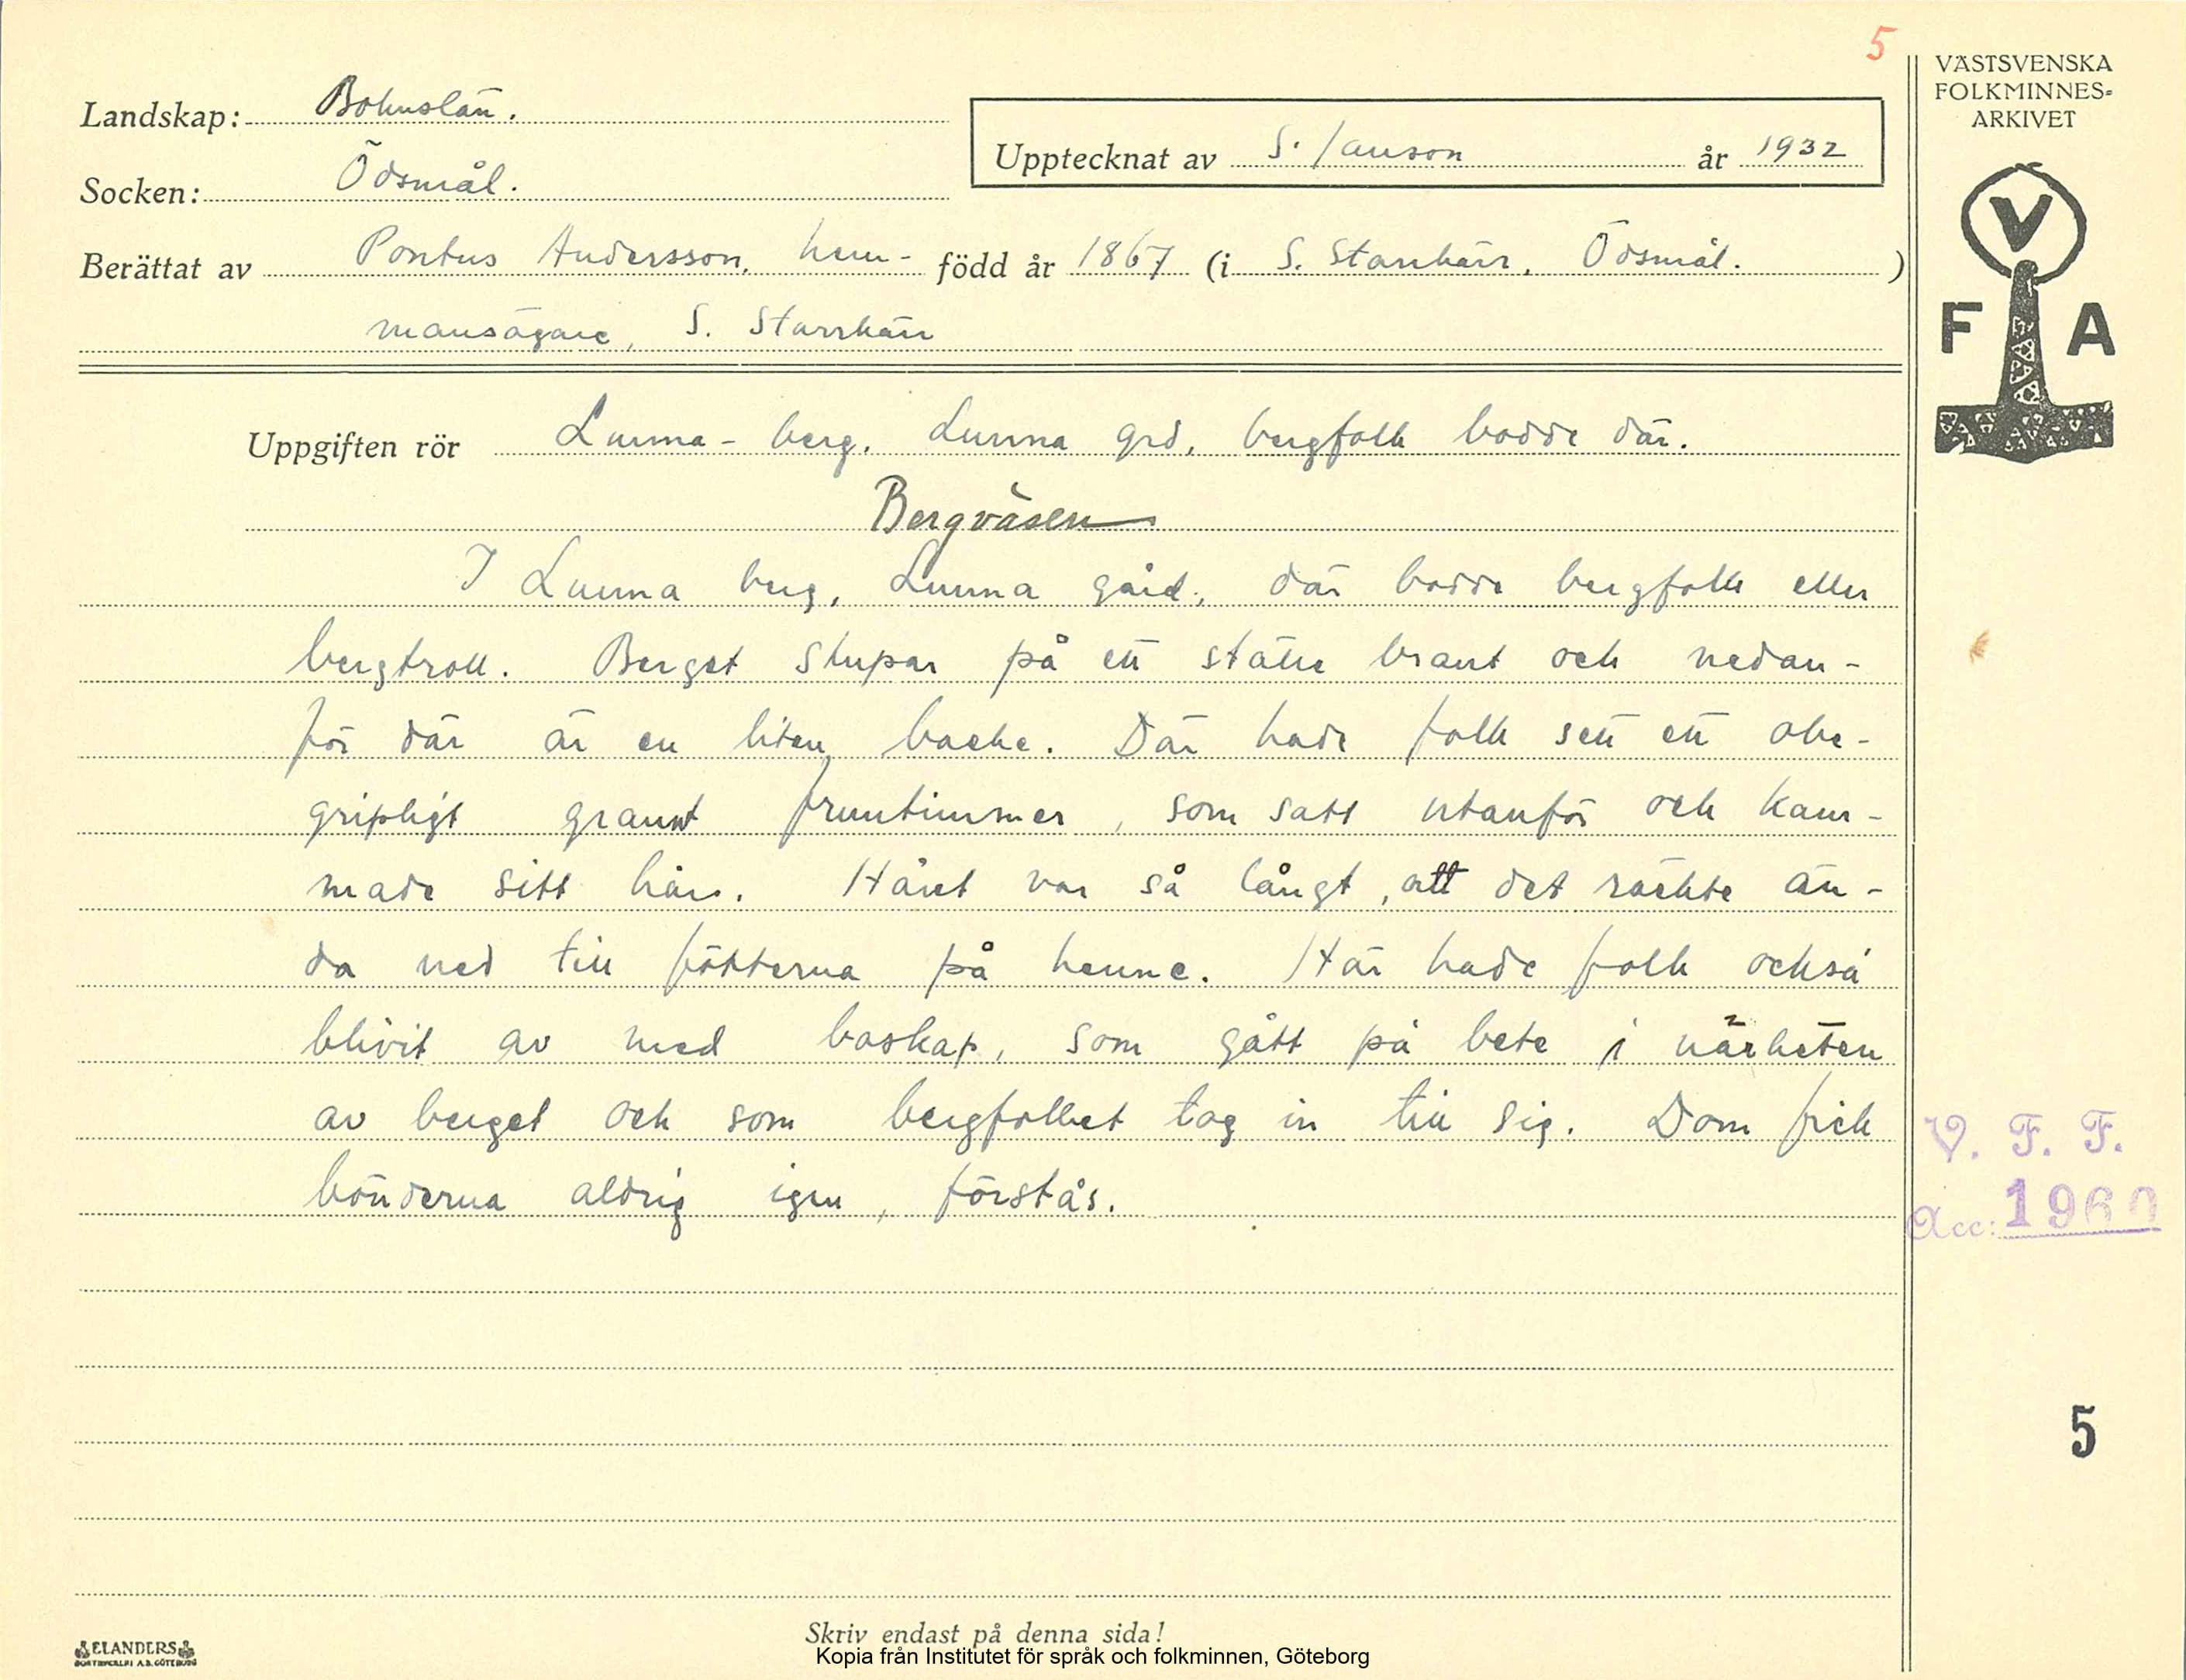 5
VÄSTSVENSKA
FOLKMINNES-
ARKIVET
Landskap: Bohuslän.
Upptecknat av S. Janson år 1932
Socken: Ödsmål.
Berättat av Pontus Andersson, hem- född år 1867 (i S. Starrkärr, Ödsmål.)
mansägare, S. Starrkärr
V
F A
Uppgiften rör Lunna-berg, Lunna grd, bergfolk bodde där.
Bergväsen
I Lunna berg, Lunna gård, där bodde bergfolk eller
bergtroll. Berget stupar på ett ställe brant och nedan-
för där är en liten backe. Där hade folk sett ett obe-
gripligt grannt fruntimmer, som satt utanför och kam-
made sitt hår. Håret var så långt, att det räckte än-
da ned till fötterna på henne. Här hade folk också
blivit av med boskap, som gått på bete i närheten
av berget och som bergfolket tog in till sig. Dom fick
bönderna aldrig igen, förstås.
V. F. F.
Acc: 1960
5
Skriv endast på denna sida!
ELANDERS
BOKTRYCKERI A.B. GÖTEBORG
Kopia från Institutet för språk och folkminnen, Göteborg